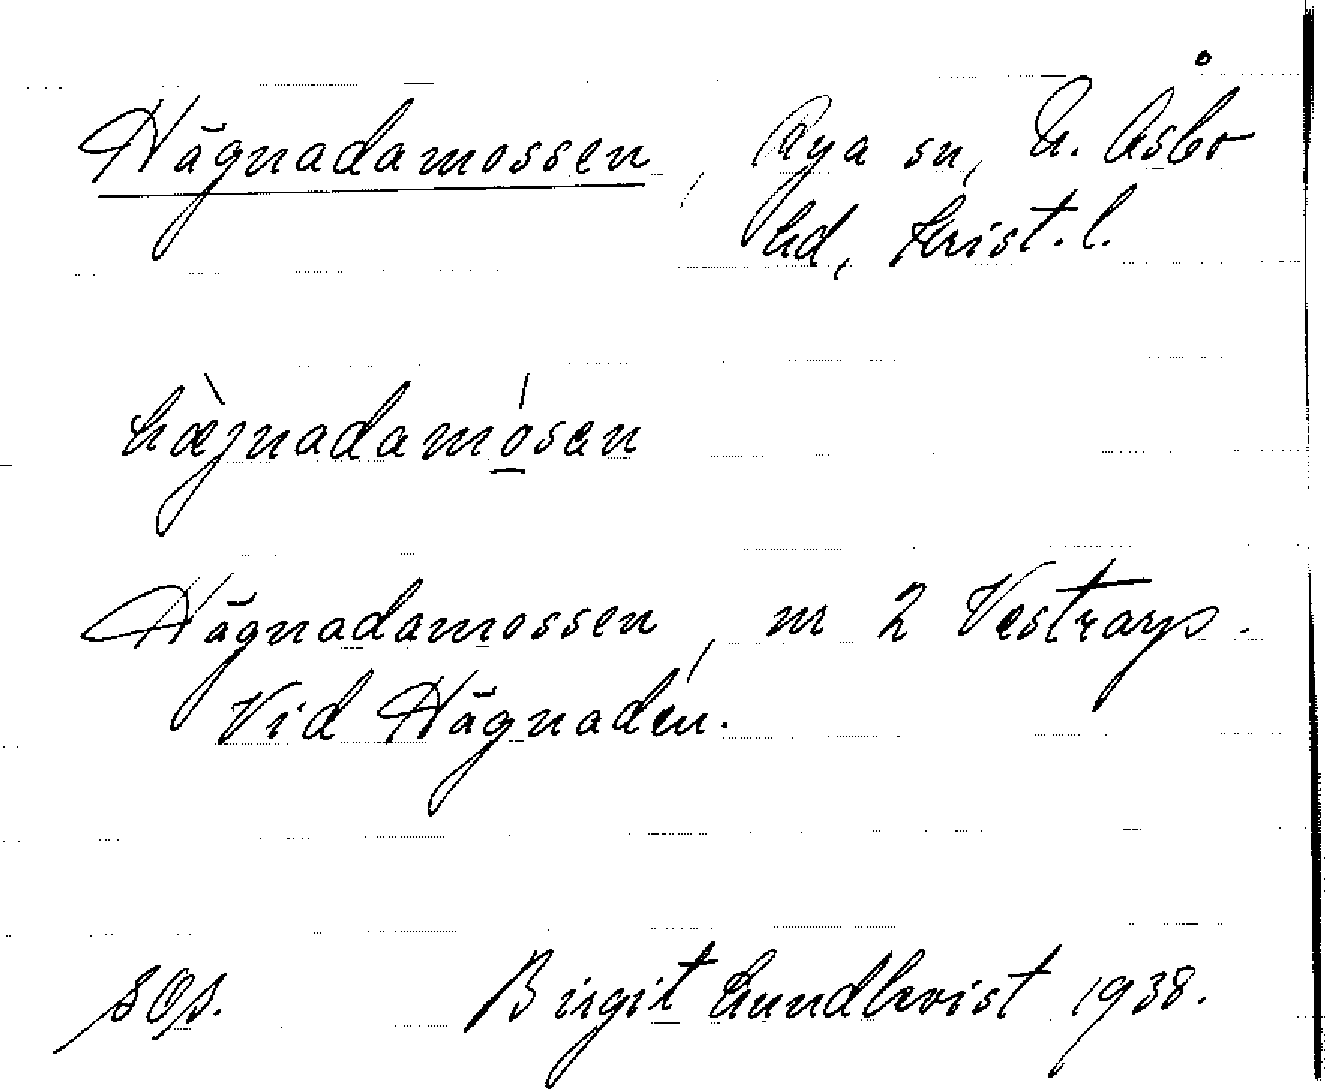 Hägnadamossen, Rya sn, N. Åsbo
hd, Krist. l.
hæ̀jnadamósan
Hägnadamossen, nr 2 Vestrarp.
Vid Hägnaden.
sOs. Birgit Lundkvist 1938.